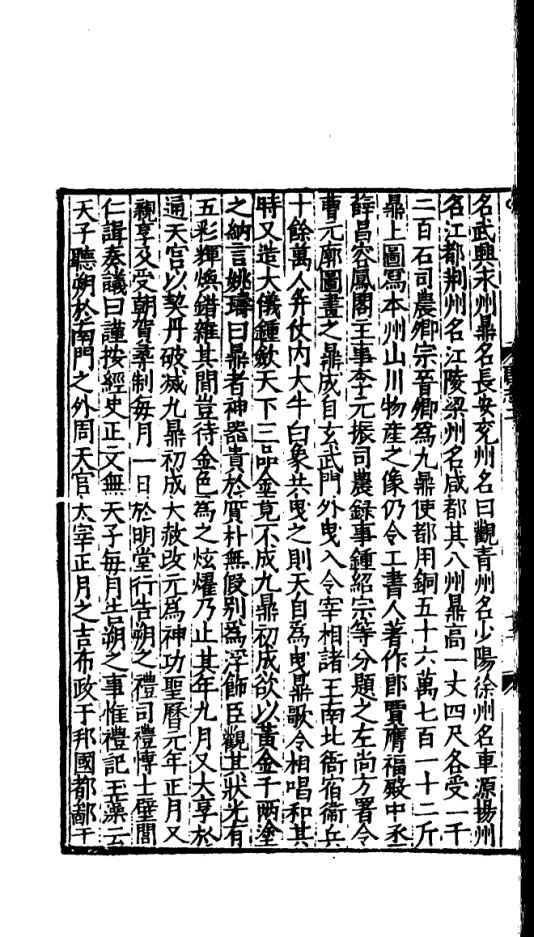 名武興永州鼎名長安兗州名日觀青州名少陽徐州名車源揚州
名江都荆州名江陵梁州名咸都其八州鼎高一丈四尺各受一千
二百石司農卿宗晉卿爲九鼎使都用銅五十六萬七百一十二斤
鼎上圖寫本州山川物産之像仍令工書人著作郎賈膺福殿中丞
薛昌容鳳閣王事李元振司農錄事鍾紹宗等分題之左尚方署令
曹元廓圖畫之鼎成自玄武門外曳入令宰相諸王南北衙宿衛兵
十餘萬人并仗内大牛白象共曳之則天自爲曳鼎歌令相唱和其
時又造大儀鍾斂天下三品金竟不成九鼎初成欲以黃金千兩塗
之納言姚璹曰鼎者神器貴於質朴無假别爲浮飾臣觀其狀光有
五彩輝煥錯雜其間豈待金色爲之炫燿乃止其年九月又大享於
通天宫以契丹破滅九鼎初成大赦改元爲神功聖曆元年正月又
親享及受朝賀尋制每月一日於明堂行告朔之禮司禮博士辟閭
仁諝奏議曰謹按經史正文無天子每月告朔之事惟禮記玉藻云
天子聽朔於南門之外周天官太宰正月之吉布政于邦國都鄙干